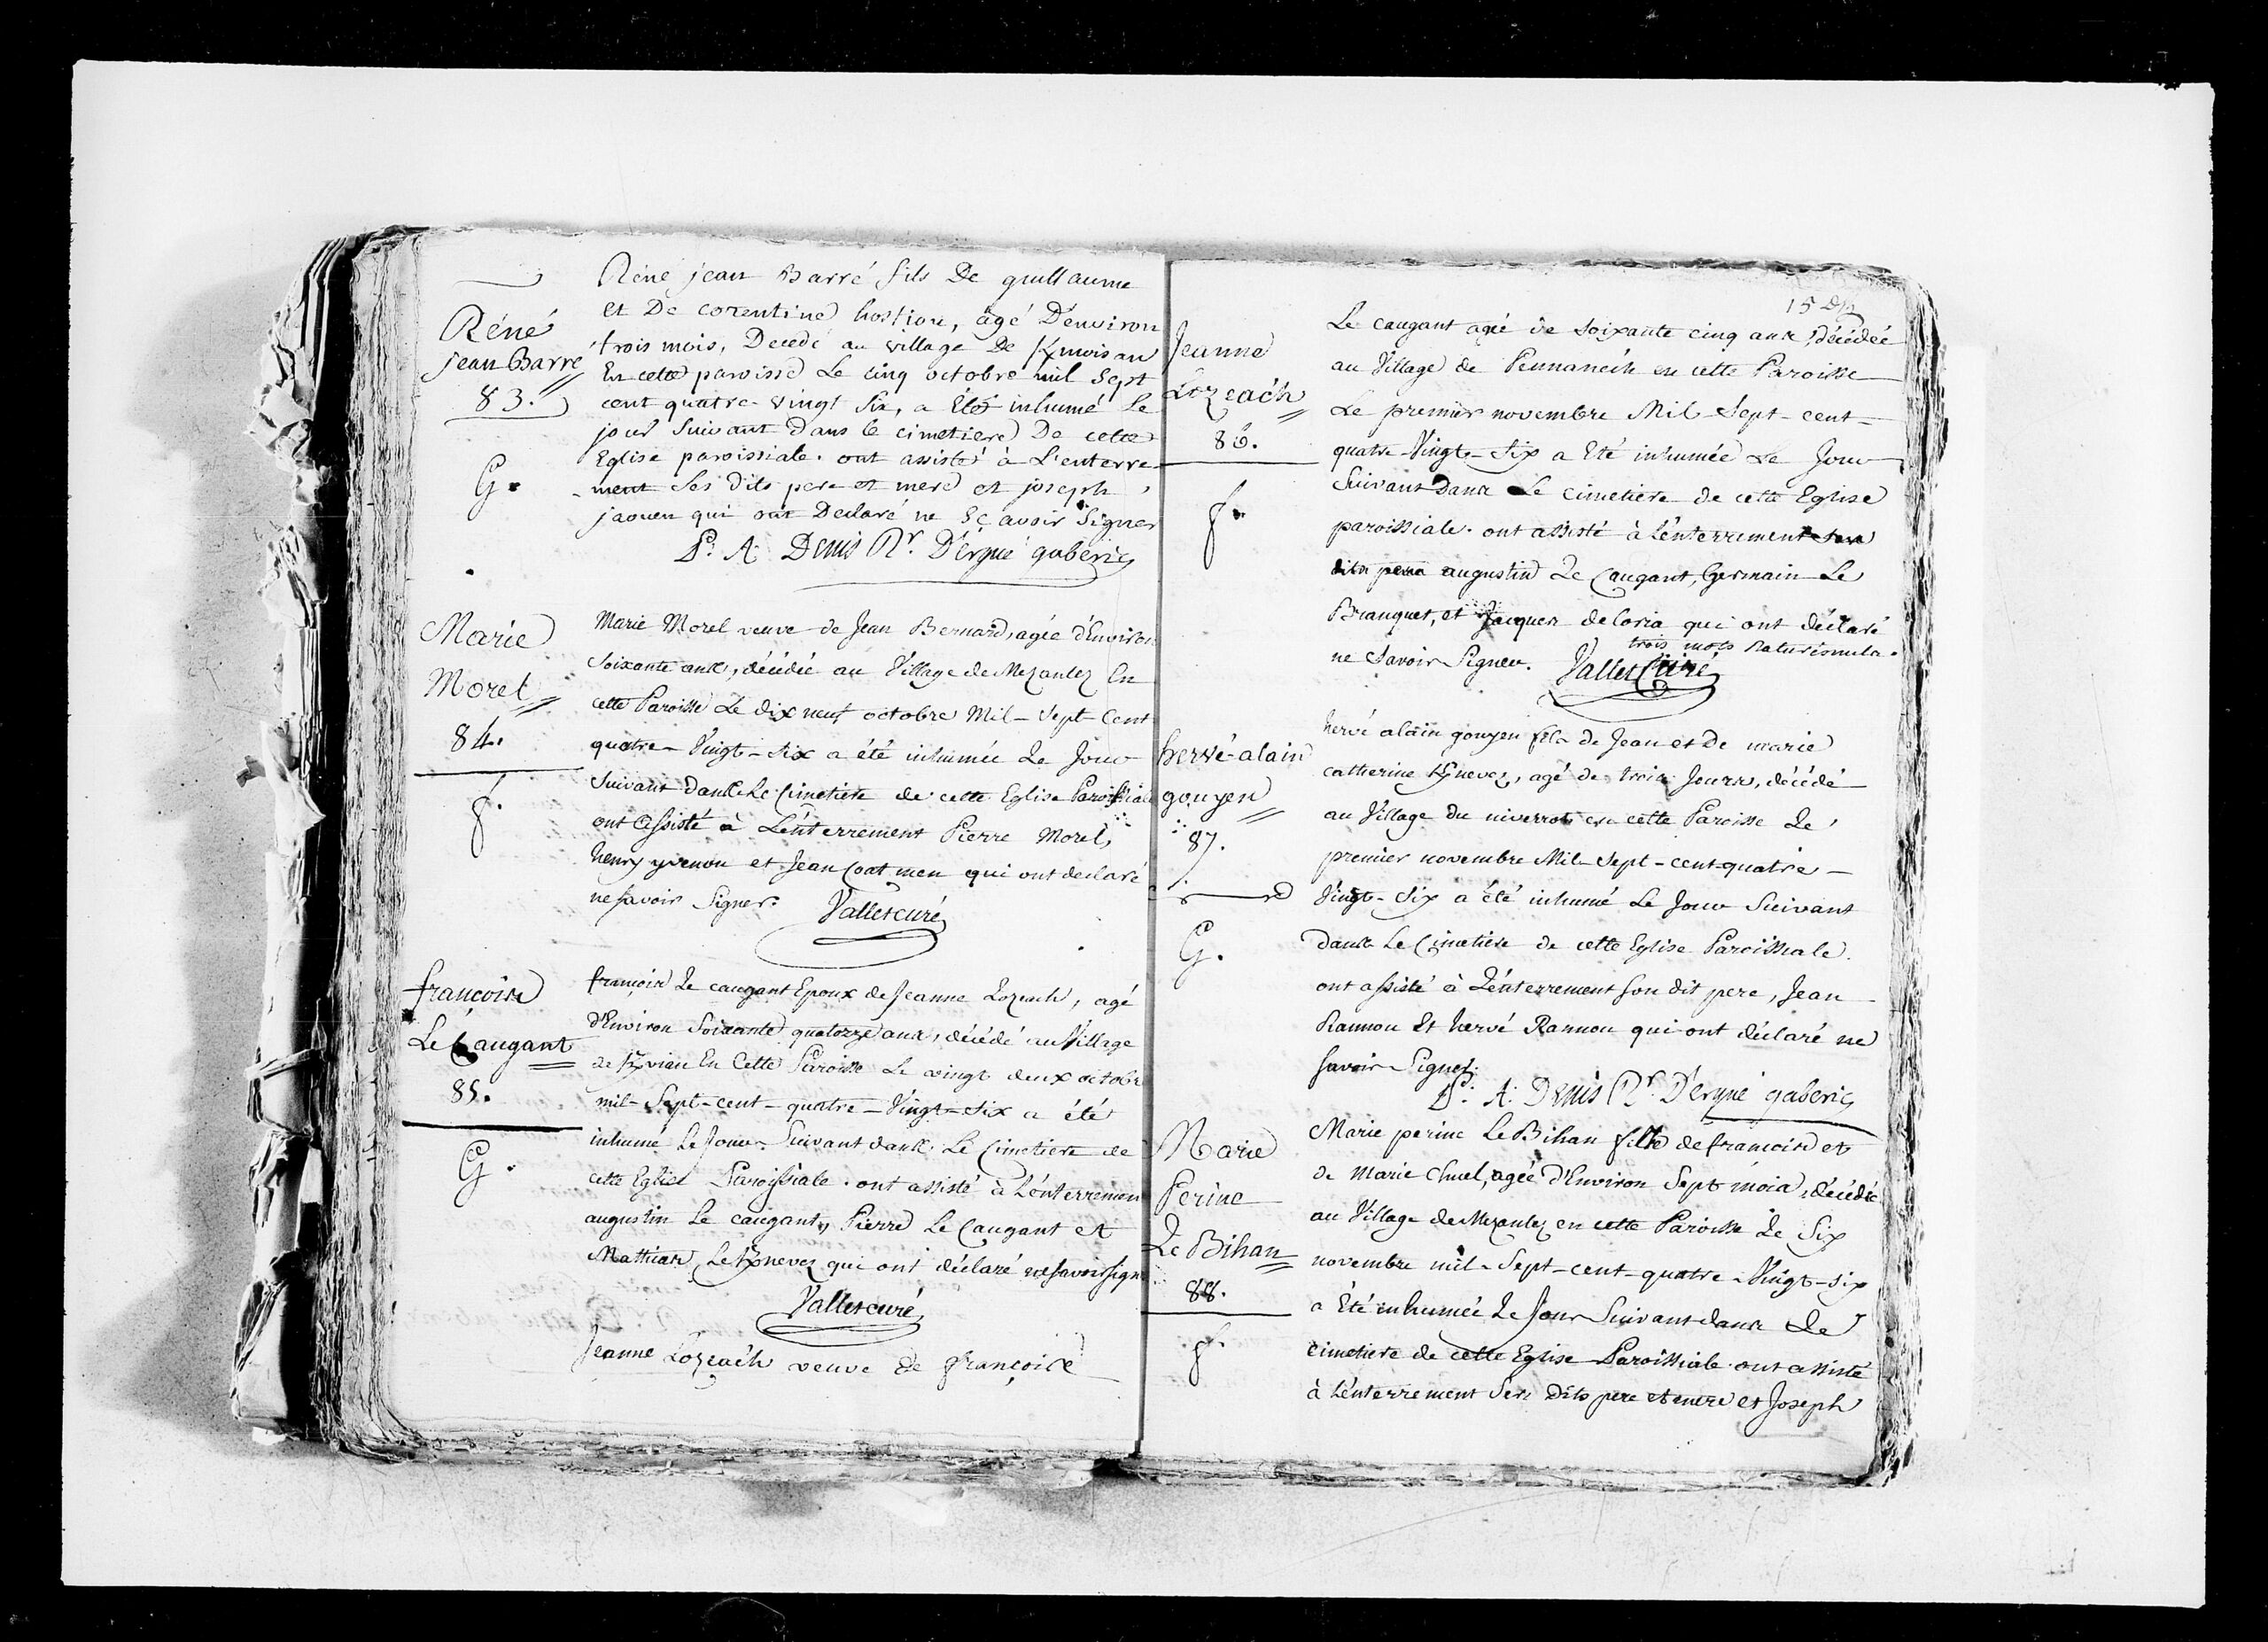 René
jean Barré
83.
G.
René jean Barré fils De guillaume
et De corentine hostiou, âgé D'environ
trois mois, Decedé au village De Kmoisan
En cette paroisse Le cinq octobre mil Sept
cent quatre-vingt Six, a Eté inhumé Le
jour Suivant Dans le cimetiere De cette
Eglise paroissiale. ont assisté à L'enterre-
-ment Ses Dits pere et mere et joseph
jaouen qui ont Declaré ne Sçavoir Signer
P: A: Denis Rr. D'ergué gabéric
Marie
Morel
84.
f.
Marie Morel veuve de Jean Bernard, agée d'Environ
Soixante ans, décédée au Village de Mezanlez En
cette Paroisse Le dix neuf octobre Mil-Sept-Cent
quatre-Vingt-Six a été inhumée Le Jour
Suivant Dans Le Cimetiere de cette Eglise Paroissiale
ont assisté à L'enterrement Pierre Morel,
henry yvenou et Jean Coatmen qui ont déclaré
ne Savoir Signer. Vallet curé
françois
Le Caugant
85.
G.
françois Le caugant Epoux de Jeanne Lozeach, agé
d'Environ Soixante quatorze ans, décédé au Village
de Kvian En Cette Paroisse Le vingt deux octobre
mil-Sept-cent-quatre-Vingt-Six a été
inhumé Le Jour Suivant dans Le Cimetiere de
cette Eglise Paroissiale. ont assisté à L'enterrement
augustin Le caugant, Pierre Le Caugant et
Mathias Le Kneves qui ont déclaré ne Savoir sign
Vallet curé
Jeanne Lozeach veuve de françois
15
Jeanne
Lozeach
86.
f.
Le caugant agée de Soixante cinq ans, décédée
au Village de Pennanech en cette Paroisse
Le premier novembre Mil-Sept-cent-
quatre-Vingt-Six a Eté inhumée Le Jour
Suivant Dans Le Cimetiere de cette Eglise
paroissiale. ont assisté à L'enterrement
augustin Le Caugant, Germain Le
Branquet, et Jacques deloria qui ont déclaré
trois mots raturés nuls.
ne Savoir Signer. Vallet Curé
hervé-alain
gouyen
87.
G.
hervé alain gouyen fils de Jean et de marie
catherine Kneves, agé de trois Jours, décédé
au Village du niverrot en cette Paroisse Le
premier novembre Mil-Sept-cent-quatre-
Vingt-Six a été inhumé Le Jour Suivant
dans Le Cimetiere de cette Eglise Paroissiale.
ont assisté à L'enterrement Son dit pere, Jean
Rannou Et hervé Rannou qui ont déclaré ne
Savoir-Signer.
P: A: Denis Rr. D'ergué gabéric
Marie
Perine
Le Bihan
88.
f.
Marie perine Le Bihan fille de françois et
de Marie Chuel, agée d'Environ Sept mois, décédée
au Village de Mezanlez en cette Paroisse Le Six
novembre mil-Sept-cent-quatre-Vingt-Six
a Eté inhumée Le Jour Suivant dans Le
cimetiere de cette Eglise Paroissiale. ont assisté
à L'enterrement Ses Dits pere et mere et Joseph